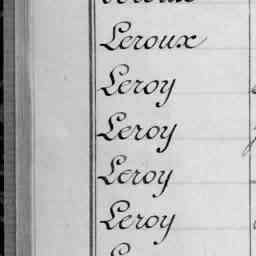 Leroux
Leroy
Leroy
Leroy
Leroy